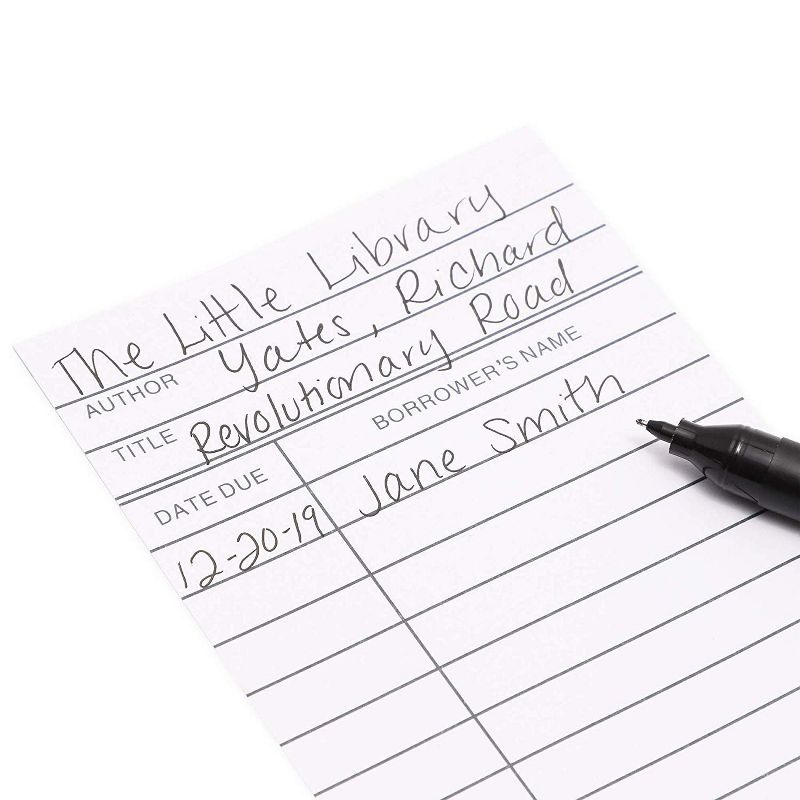 The Little Library
AUTHOR Yates, Richard
TITLE Revolutionary Road
DATE DUE BORROWER'S NAME
12-20-19 Jane Smith